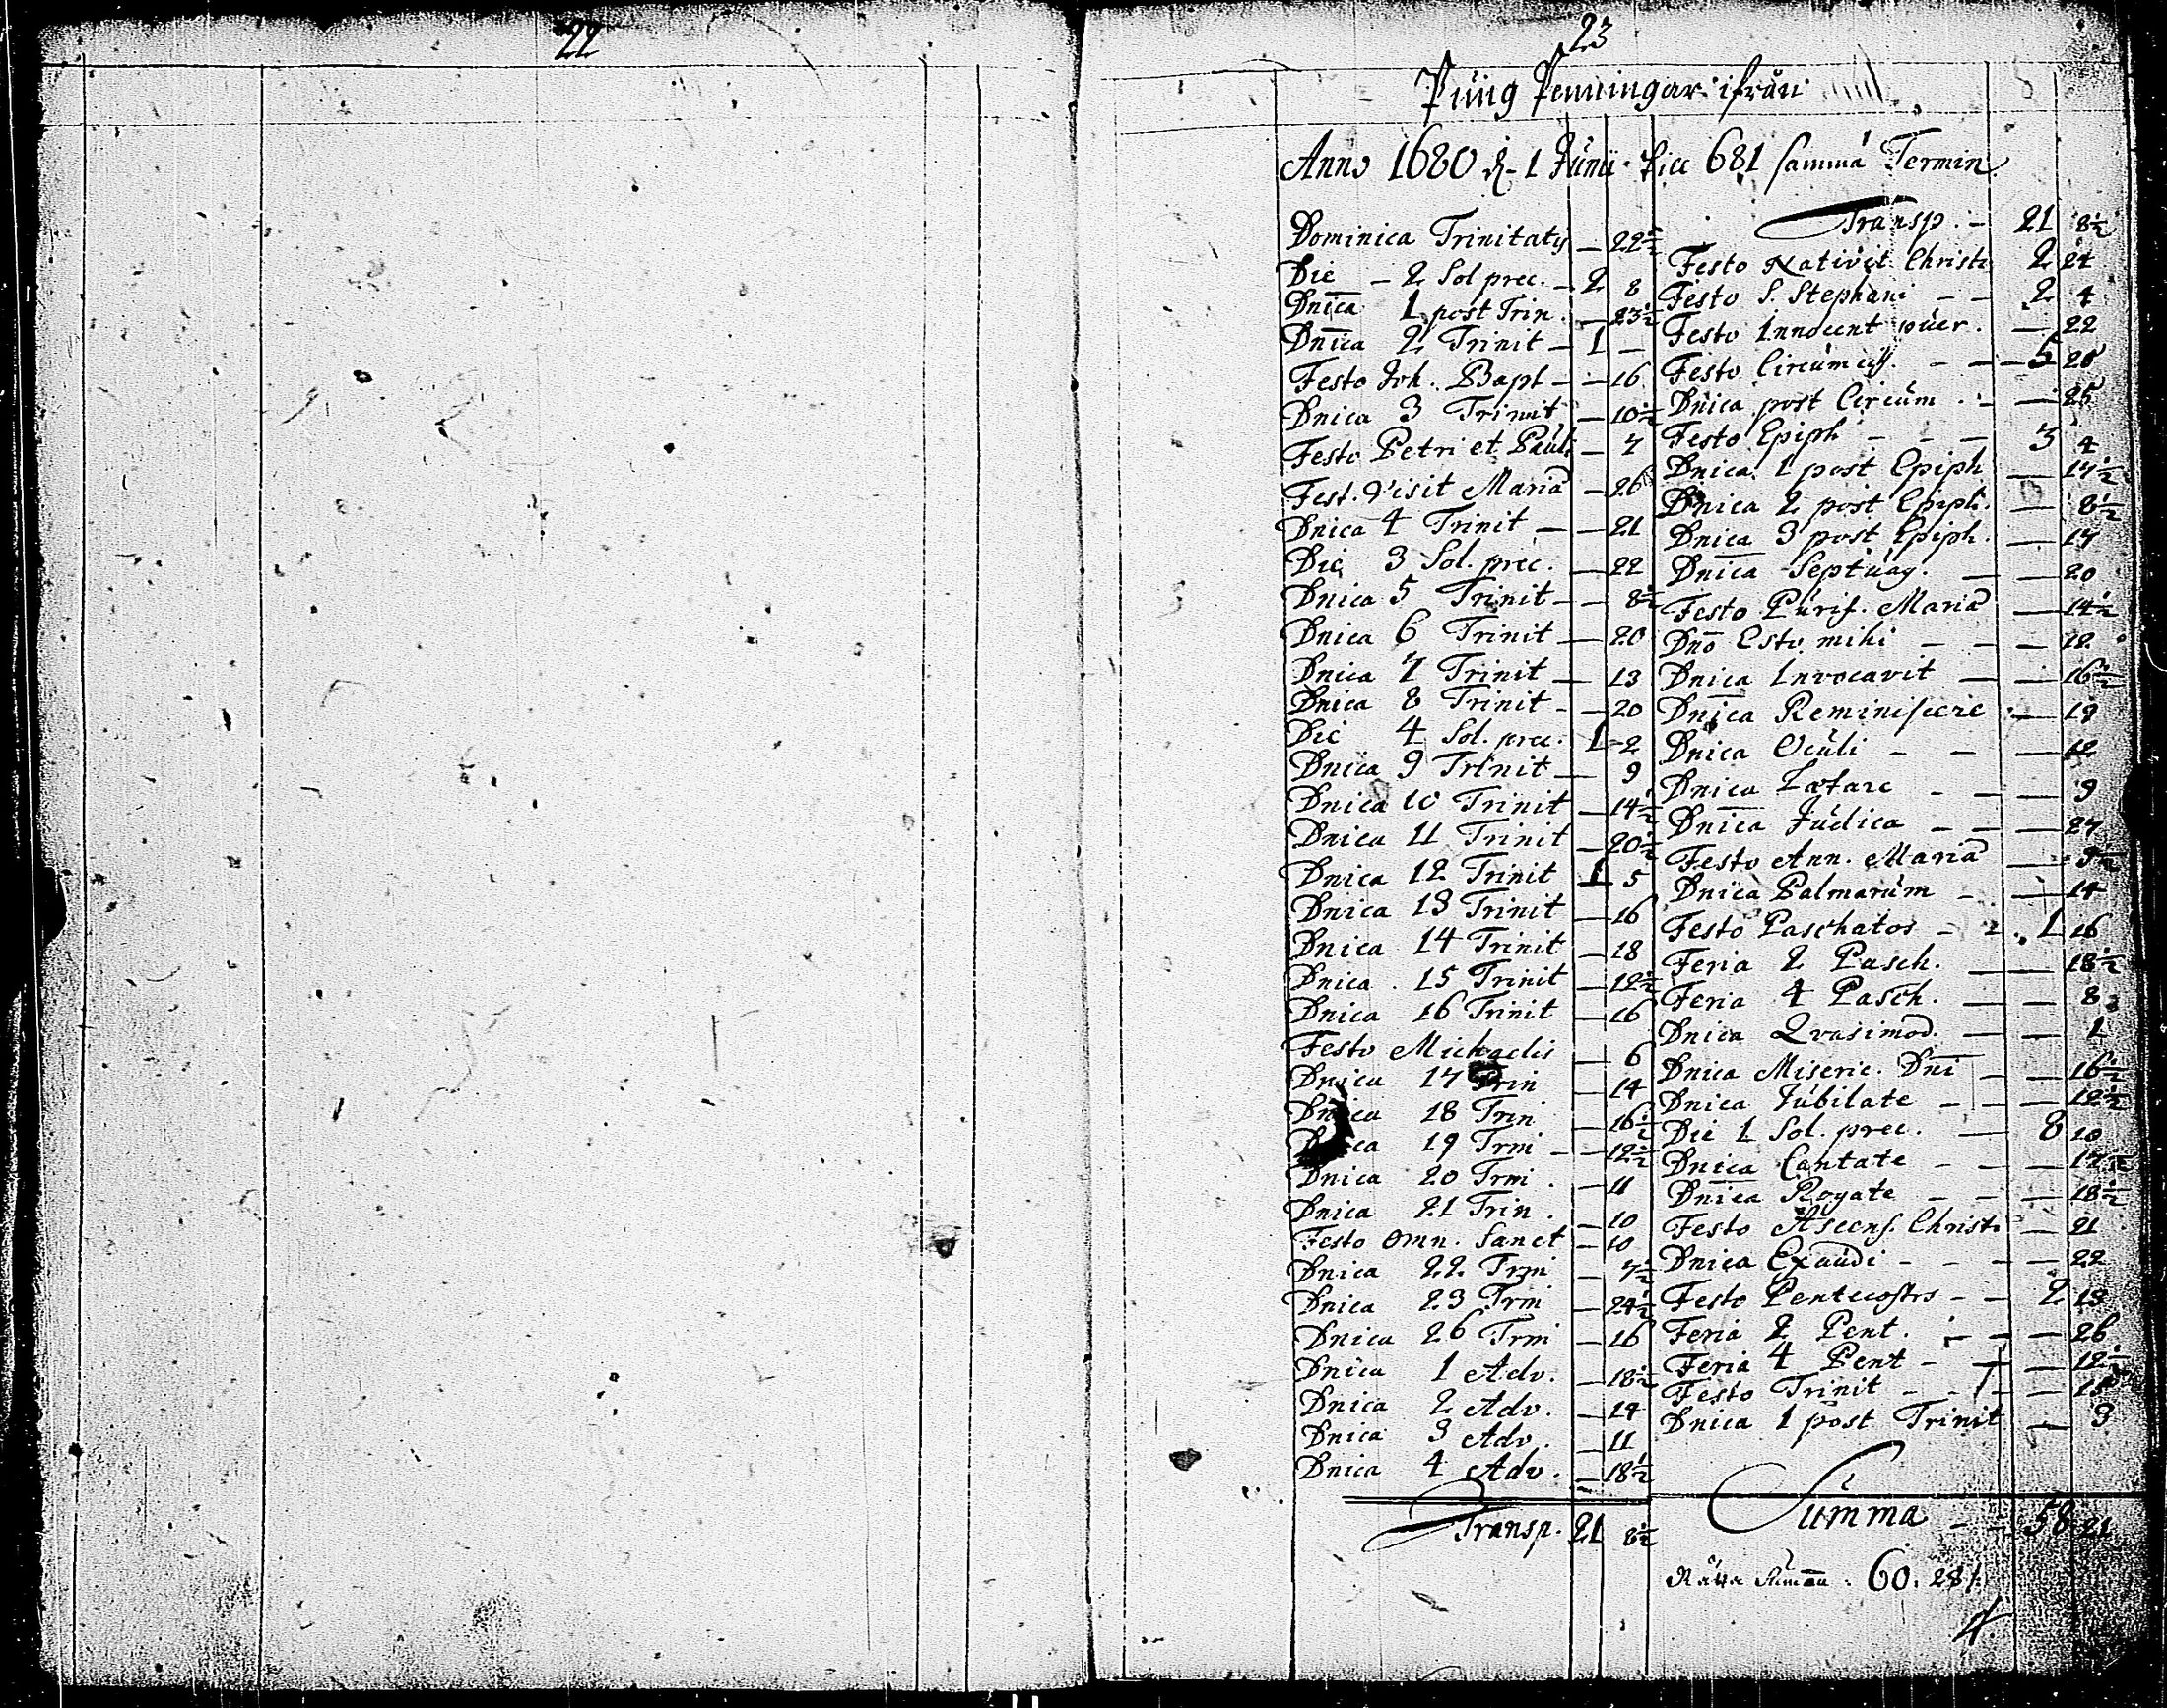 22
23
Pung Penningar ifrån
Anno 1680 d. 1 Junii 681 samma Termin
Dominica Trinitatis — 22½
Die — 2 Sol prec. — 2 8
Dnica 1 post Trin. — 23½
Dnica 2 Trinit — 1 —
Festo Joh. Bapt — — 16
Dnica 3 Trinit — 10½
Festo Petri et Pauli — 7
Fest. Visit Mariæ — 26
Dnica 4 Trinit — — 21
Die 3 Sol. prec. — 22
Dnica 5 Trinit — — 8½
Dnica 6 Trinit — 20
Dnica 7 Trinit — 13
Dnica 8 Trinit - — 20
Die 4 Sol. prec. 1 - 2
Dnica 9 Trinit — 9
Dnica 10 Trinit — 14½
Dnica 11 Trinit — 20½
Dnica 12 Trinit 1 5
Dnica 13 Trinit — 16
Dnica 14 Trinit — 18
Dnica 15 Trinit — 12½
Dnica 16 Trinit — 16
Festo Michaelis — 6
Dnica 17 Trin — 14
Dnica 18 Trin — 16½
Dnica 19 Trini - — 12½
Dnica 20 Trini . — 11
Dnica 21 Trin . — 10
Festo Omn. Sanct — 10
Dnica 22 Trini — 7½
Dnica 23 Trini — 24½
Dnica 26 Trini — 16
Dnica 1 Adv. — 18½
Dnica 2 Adv. — 14
Dnica 3 Adv. — 11
Dnica 4 Adv. — 18½
Transp. 21 8½
Transp. — 21 8½
Festo Nativit Christi 2 24
Festo S. Stephani — — 2 4
Festo Innocent puer. — 22
Festo Circumcis. - — — 5 20
Dnica post Circum . - — 25
Festo Epiph - - — 3 4
Dnica 1 post Epiph — 17½
Dnica 2 post Epiph. — 8½
Dnica 3 post Epiph. — 17
Dnica Septuag. — — 20
Festo Purif. Mariæ — 14½
Dno Esto mihi - — — 12
Dnica Invocavit — — 16½
Dnica Reminiscere — 19
Dnica Oculi - - — 12
Dnica Lætare - — — 9
Dnica Judica - - — 27
Festo Ann. Mariæ — 9½
Dnica Palmarum - — 14
Festo Paschatos - - 1 16
Feria 2 Pasch. — — 18½
Feria 4 Pasch. — — 8
Dnica Qvasimod. — — 1
Dnica Miseric. Dni — — 16½
Dnica Jubilate - - — 12½
Die 1 Sol. prec. — 8 10
Dnica Cantate - - — 17½
Dnica Rogate - - — 18½
Festo Ascens. Christi — 21
Dnica Exaudi - - — — 22
Festo Pentecostes - — 2 13
Feria 2 Pent. - - — 26
Feria 4 Pent - — — 12½
Festo Trinit - - - — 15
Dnica 1 post Trinit — 3
Summa - - 58 21
Rätta Suman : 60. 28